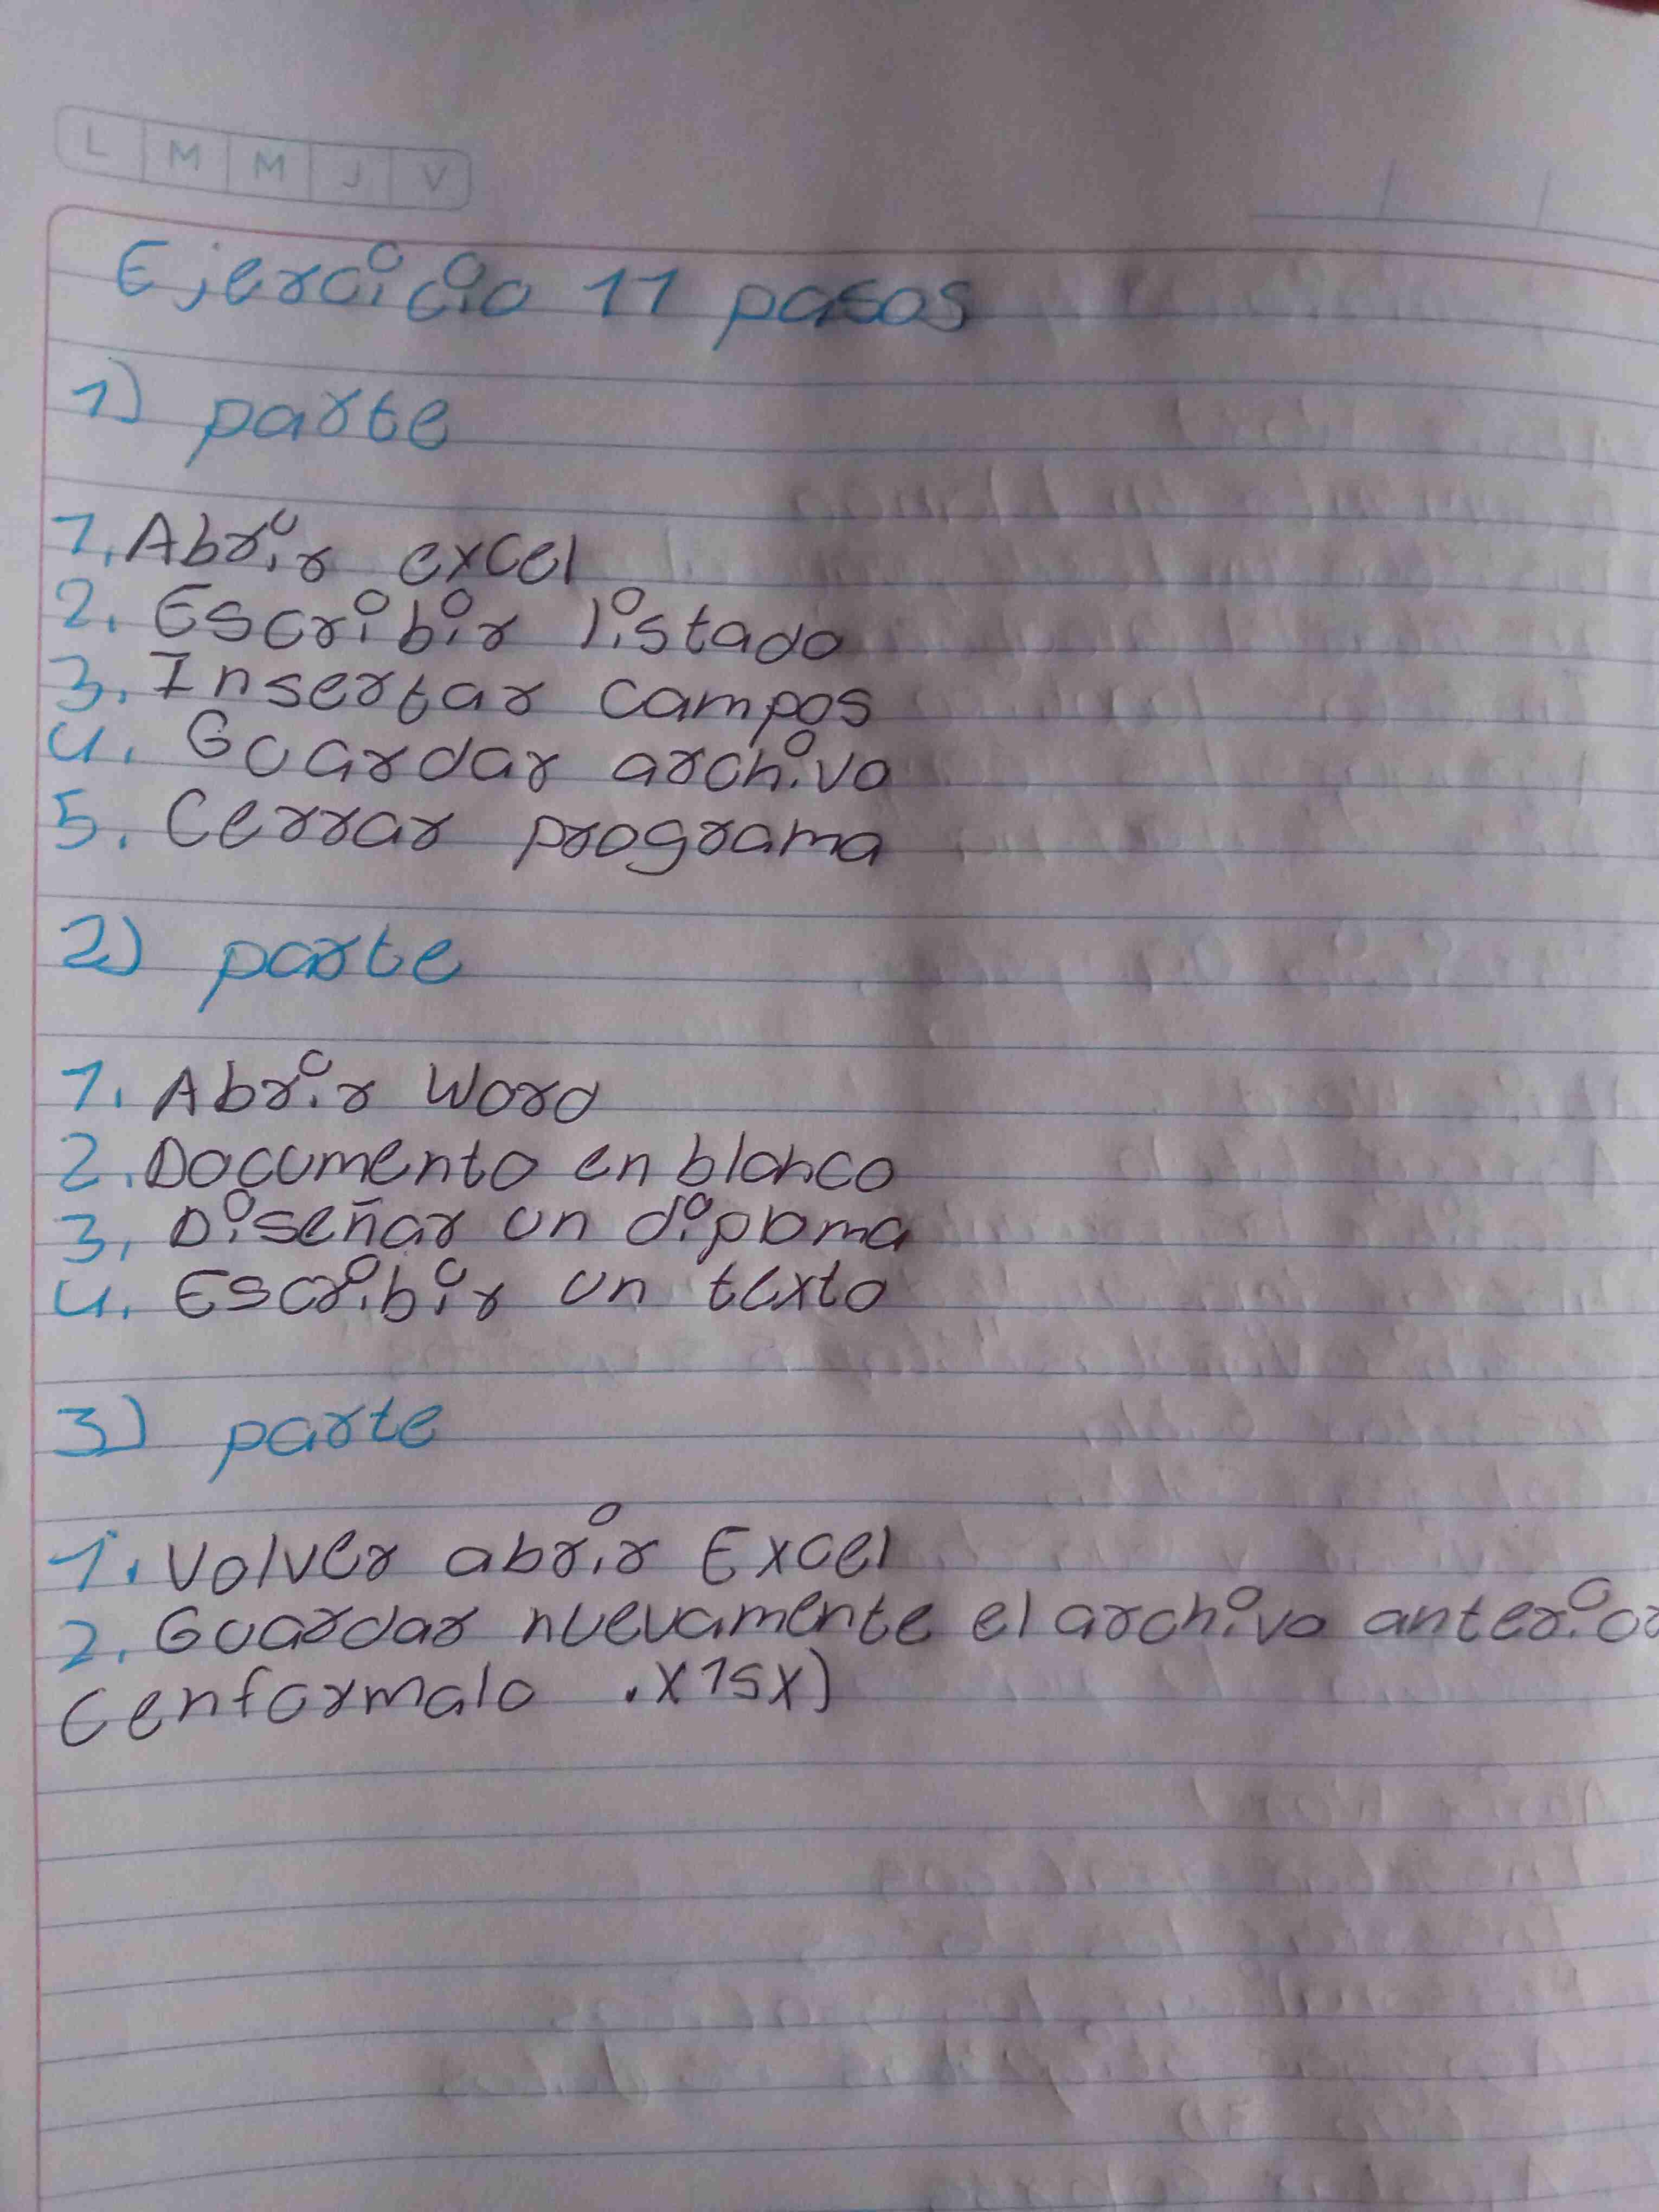 L M M J V
Ejercicio 11 pasos
1) parte
1. Abrir excel
2. Escribir listado
3. Insertar campos
4. Guardar archivo
5. Cerrar programa
2) parte
1. Abrir Word
2. Documento en blanco
3. Diseñar un diploma
4. Escribir un texto
3) parte
1. Volver abrir Excel
2. Guardar nuevamente el archivo anterior
(enformalo .X1sx)